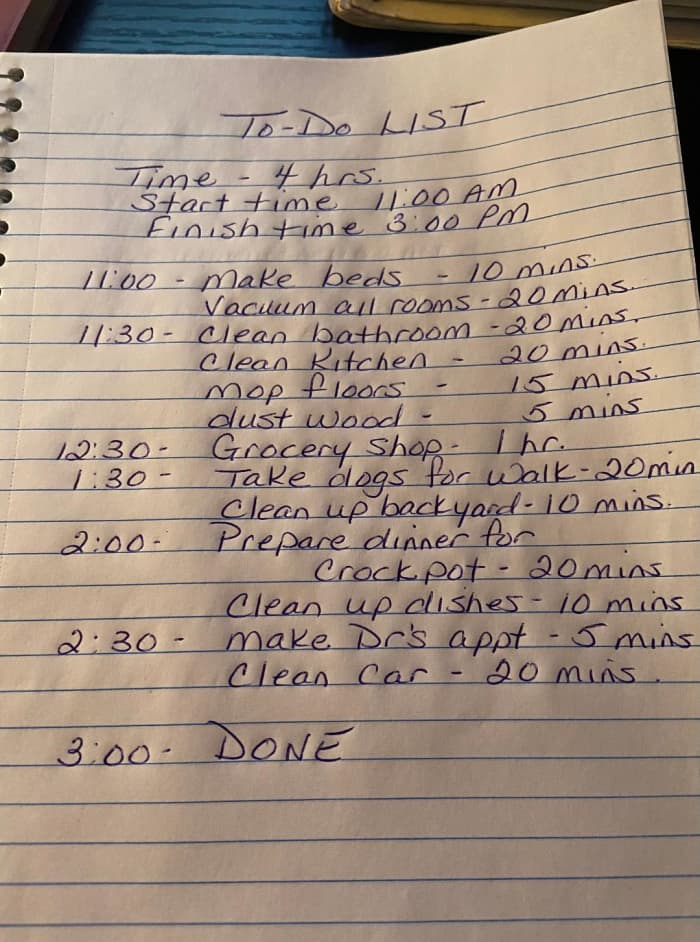 To-Do LIST
Time - 4 hrs.
Start time 11:00 AM
Finish time 3:00 PM
11:00 - make beds - 10 mins.
Vacuum all rooms - 20 mins.
11:30 - Clean bathroom - 20 mins.
Clean Kitchen - 20 mins.
mop floors - 15 mins.
dust wood - 5 mins
12:30 - Grocery Shop - 1 hr.
1:30 - Take dogs for walk - 20 min
Clean up backyard - 10 mins.
2:00 - Prepare dinner for
Crockpot - 20 mins
Clean up dishes - 10 mins
2:30 - make Dr's appt - 5 mins
Clean Car - 20 mins.
3:00 - DONE